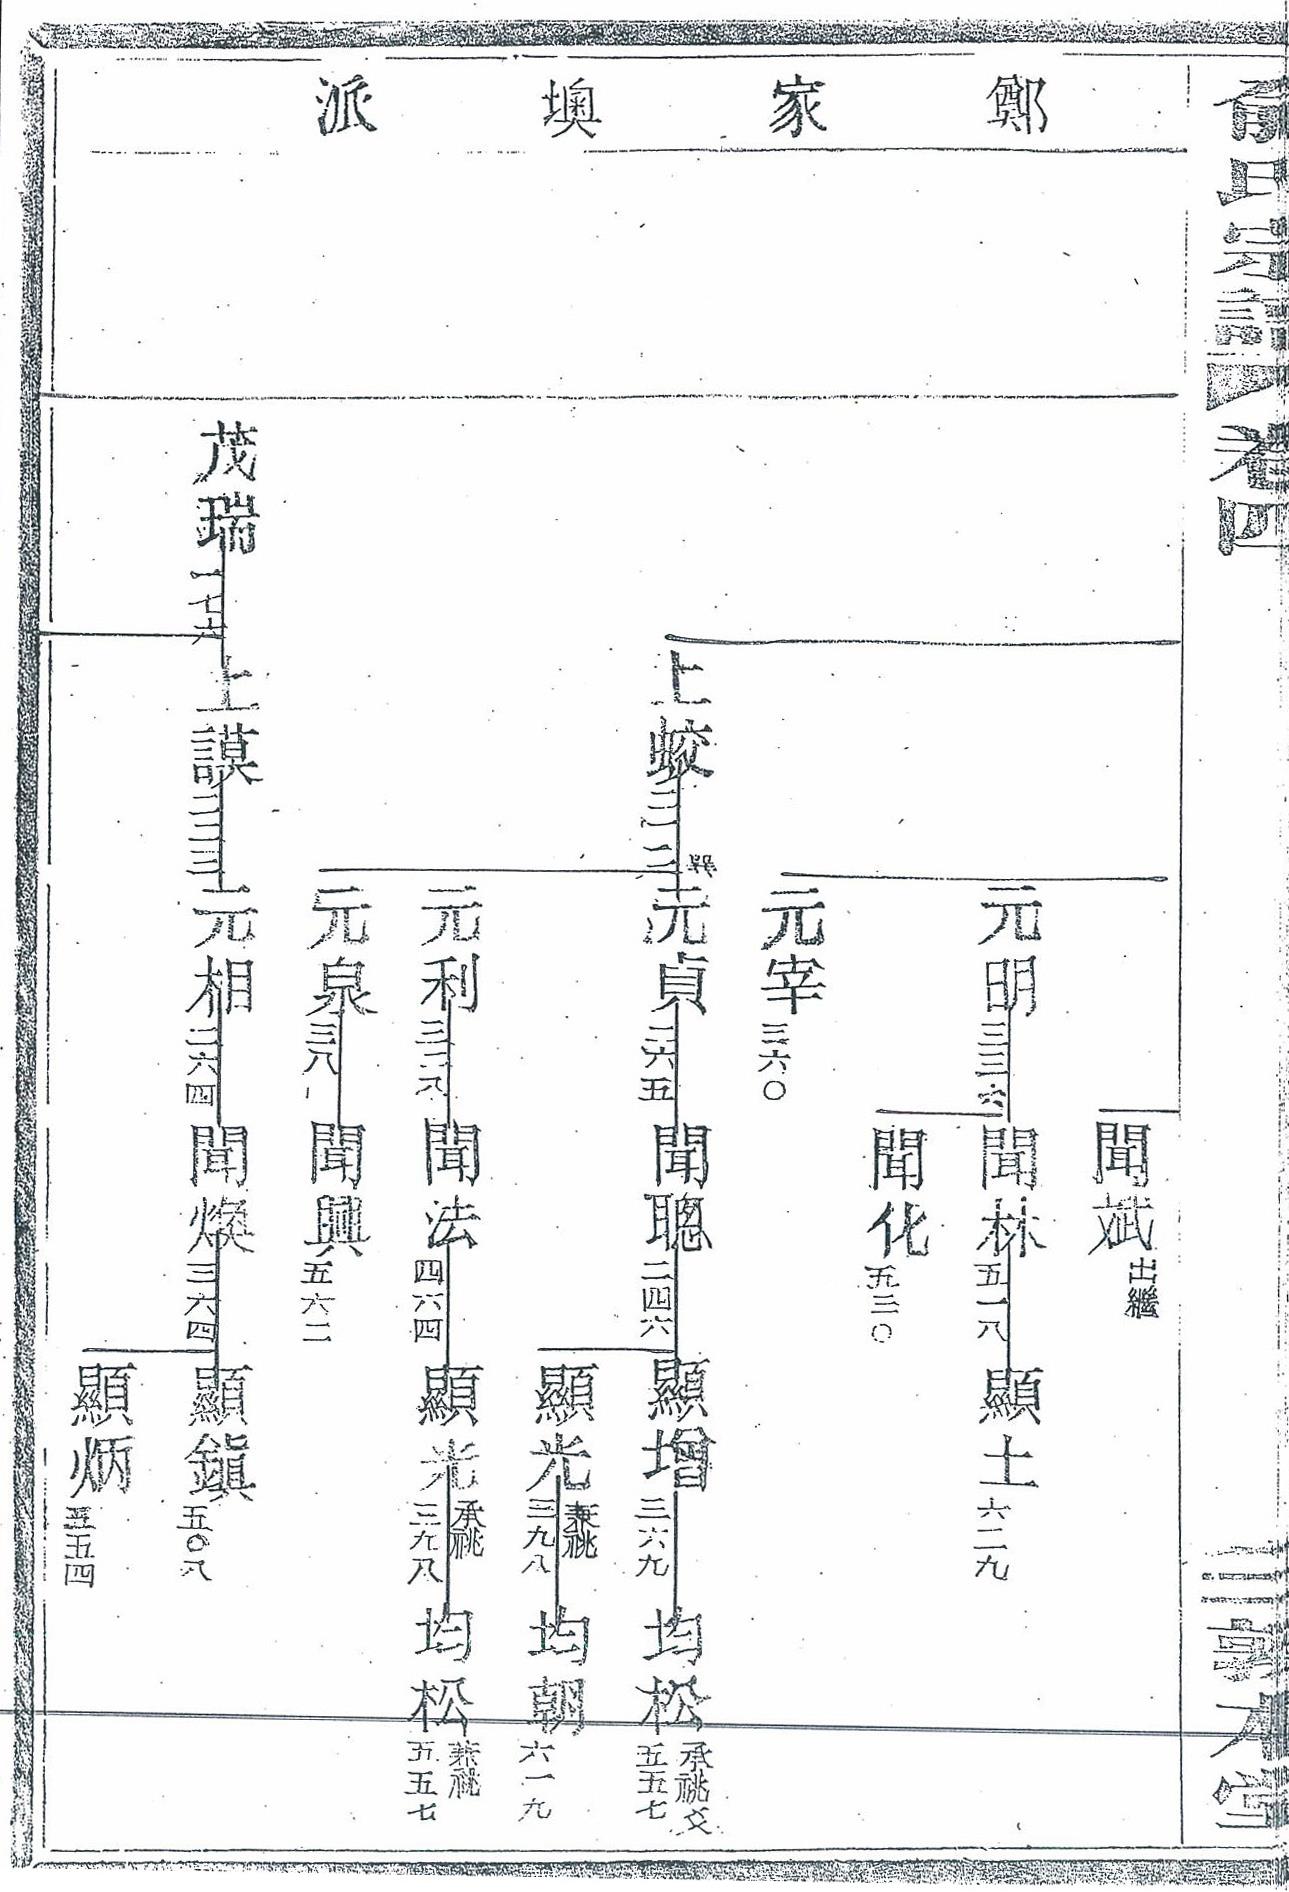 俞氏宗譜
卷四
三
敦本堂
鄭家墺派
聞斌
出繼
元明
三三六
聞林
五一八
顯士
六二九
聞化
五三〇
元宰
三六〇
上蛟
元貞
二六五
聰聞
二四六
顯增
三六九
均松
五五七
承祧
顯光
兼祧
三九八
均朝
六一九
元利
聞法
四六四
顯光
承祧
三九八
均松
兼祧
五五七
元泉
三八一
聞興
五六二
茂瑞
一七六
上謨
二二三
元相
二六四
聞煥
三六四
顯鎮
五〇八
顯炳
五五四